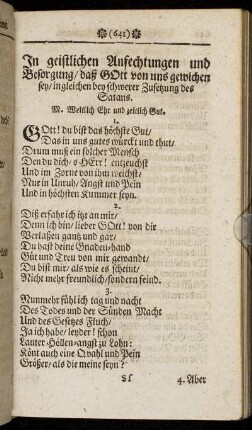 (641)
In geistlichen Anfechtungen und
Besorgung / daß GOtt von uns gewichen
sey / ingleichen bey schwerer Zusetzung des
Satans.
M. Weltlich Ehr und zeitlich Gut.
1.
GOtt! du bist das höchste Gut /
Das in uns gutes würckt und thut /
Drum muß ein solcher Mensch
Den du dich / o HErr! entzeuchst
Und im Zorne von ihm weichst /
Nur in Unruh / Angst und Pein
Und in höchsten Kummer seyn.
2.
Diß erfahr ich itzt an mir /
Denn ich bin / lieber GOtt! von dir
Verlassen gantz und gar /
Du hast deine Gnaden-hand
Güt und Treu von mir gewandt /
Du bist mir / als wie es scheint /
Nicht mehr freundlich / sondern feind.
3.
Nunmehr fühl ich tag und nacht
Des Todes und der Sünden Macht
Und des Gesetzes Fluch /
Ja ich habe / leyder! schon
Lauter Höllen-angst zu Lohn:
Könt auch eine Qvahl und Pein
Größer / als die meine seyn?
Ss
4. Aber